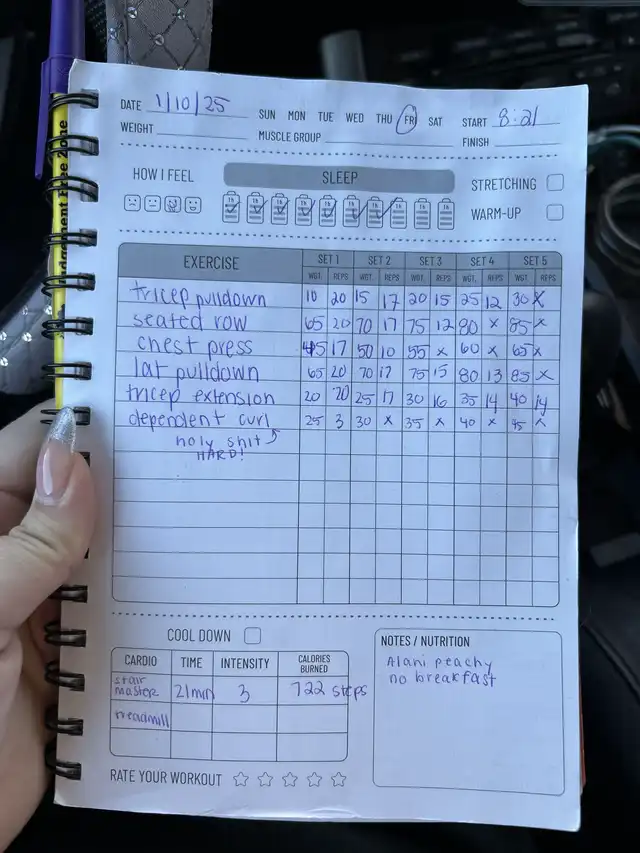 DATE 1/10/25 SUN MON TUE WED THU FRI SAT START 8:21
WEIGHT MUSCLE GROUP FINISH
HOW I FEEL SLEEP STRETCHING
1h 1h 1h 1h 1h 1h 1h 1h 1h 1h WARM-UP
EXERCISE SET 1 SET 2 SET 3 SET 4 SET 5
WGT. REPS WGT. REPS WGT. REPS WGT. REPS WGT. REPS
tricep pulldown 10 20 15 17 20 15 25 12 30 x
seated row 65 20 70 17 75 12 80 x 85 x
chest press 45 17 50 10 55 x 60 x 65 x
lat pulldown 65 20 70 17 75 15 80 13 85 x
tricep extension 20 20 25 17 30 16 35 14 40 14
dependent curl 25 3 30 x 35 x 40 x 45 x
holy shit
HARD!
COOL DOWN
CARDIO TIME INTENSITY CALORIES BURNED
stair master 21min 3 722 steps
treadmill
RATE YOUR WORKOUT
NOTES / NUTRITION
Alani peachy
no breakfast